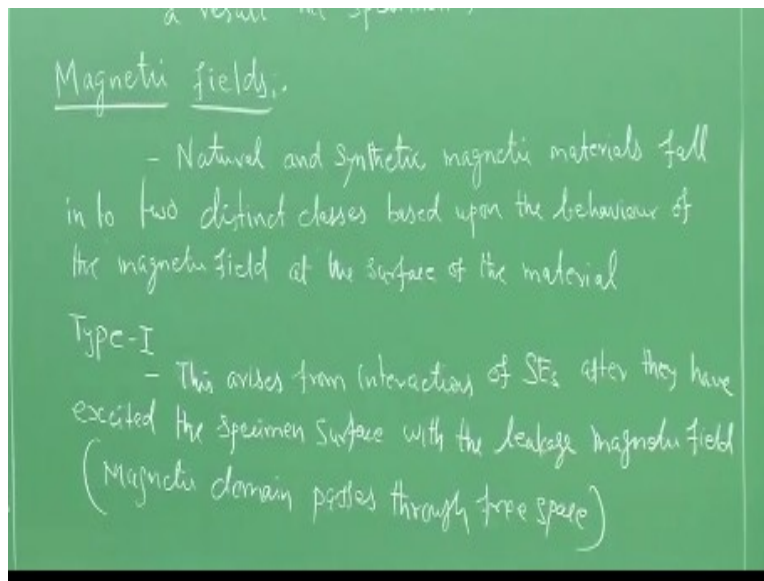 a result the specimen
Magnetic fields:-
- Natural and synthetic magnetic materials fall
in to two distinct classes based upon the behaviour of
the magnetic field at the surface of the material
Type-I
- This arises from interactions of SEs after they have
excited the specimen surface with the leakage magnetic field
(Magnetic domain passes through free space)